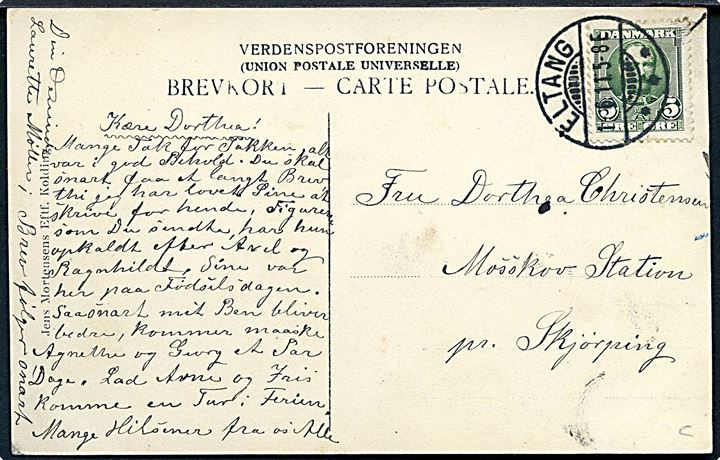 VERDENSPOSTFORENINGEN
(UNION POSTALE UNIVERSELLE)
BREVKORT — CARTE POSTALE.
ELTANG
DANMARK
5 5
ØRE
Kære Dorthea!
Mange Tak for Pakken, alt
var i god Behold. Du skal
snart faa et langt Brev
thi jeg har lovet Sine at
skrive for hende, Figurerne
som Du sendte, har hun
opkaldt efter Axel og
Ragnhildt, Sine var
her paa Födselsdagen.
Saasnart mit Ben bliver
bedre, kommer maaske
Agnethe og Georg et Par
Dage. Lad Arne og Iris
komme en Tur i Ferien
Mange Hilsener fra os Alle
Laurette Möller
Brev følger snart
Jens Mortensens Eftf. Kolding
Fru Dorthea Christensen
Mosskov Station
pr. Skjörping